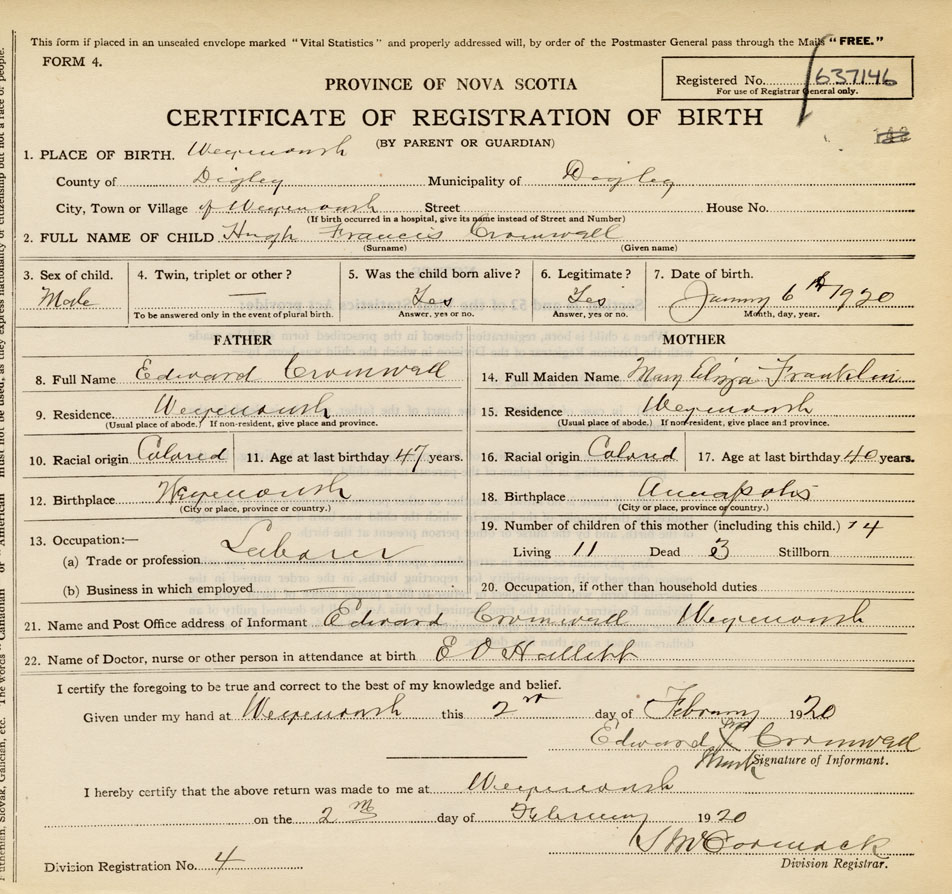 This form if placed in an unsealed envelope marked "Vital Statistics" and properly addressed will, by order of the Postmaster General pass through the Mails "FREE."
FORM 4.
Registered No. 637146
For use of Registrar General only.
PROVINCE OF NOVA SCOTIA
CERTIFICATE OF REGISTRATION OF BIRTH
(BY PARENT OR GUARDIAN)
1. PLACE OF BIRTH. Weymouth
County of Digby Municipality of Digby
City, Town or Village of Weymouth Street House No.
(If birth occurred in a hospital, give its name instead of Street and Number)
2. FULL NAME OF CHILD Hugh Francis Cromwell
(Surname) (Given name)
3. Sex of child. 4. Twin, triplet or other? 5. Was the child born alive? 6. Legitimate? 7. Date of birth.
Male — Yes Yes January 6th 1920
To be answered only in the event of plural birth. Answer, yes or no. Answer, yes or no. Month, day, year.
FATHER MOTHER
8. Full Name Edward Cromwell 14. Full Maiden Name Mary Eliza Franklin
9. Residence. Weymouth 15. Residence Weymouth
(Usual place of abode.) If non-resident, give place and province. (Usual place of abode.) If non-resident, give place and province.
10. Racial origin Colored 11. Age at last birthday 47 years. 16. Racial origin Colored 17. Age at last birthday 40 years.
12. Birthplace Weymouth 18. Birthplace Annapolis
(City or place, province or country.) (City or place, province or country.)
19. Number of children of this mother (including this child.) 14
13. Occupation:— Living 11 Dead 3 Stillborn
(a) Trade or profession Laborer
(b) Business in which employed 20. Occupation, if other than household duties
21. Name and Post Office address of Informant Edward Cromwell Weymouth
22. Name of Doctor, nurse or other person in attendance at birth E O Hallett
I certify the foregoing to be true and correct to the best of my knowledge and belief.
Given under my hand at Weymouth this 2nd day of February 1920
Edward X Cromwell
Mark
Signature of Informant.
I hereby certify that the above return was made to me at Weymouth
on the 2nd day of February 1920
S McCormack
Division Registration No. 4 Division Registrar.